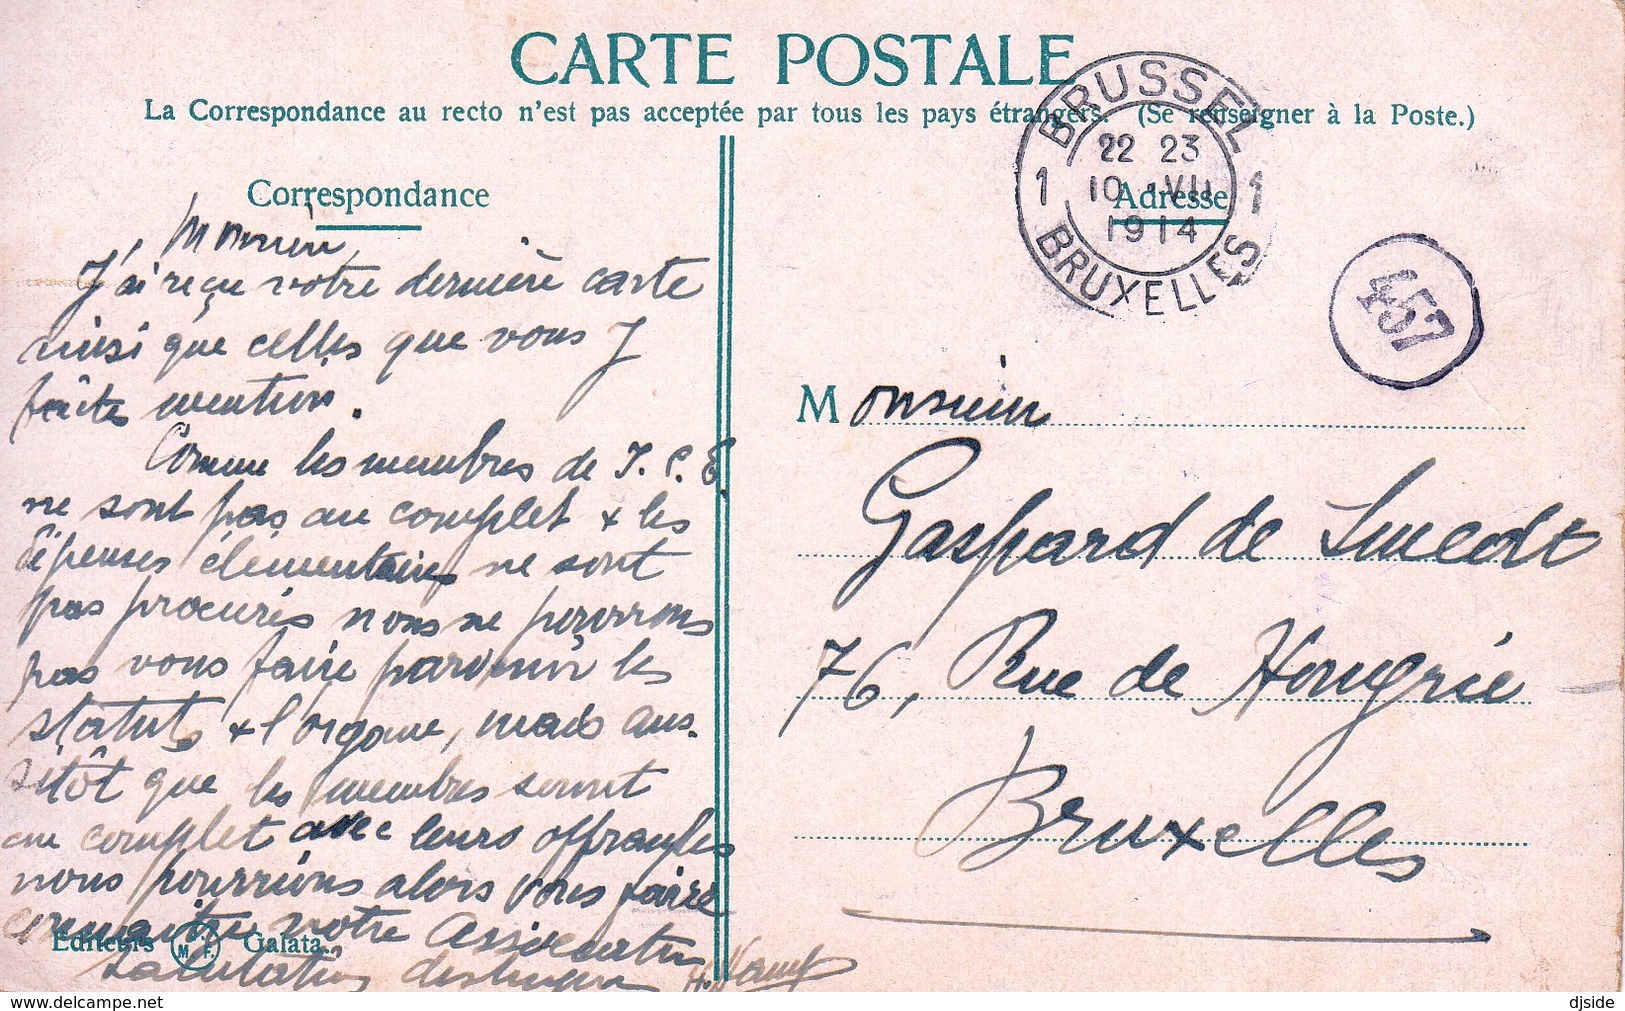 CARTE POSTALE
La Correspondance au recto n'est pas acceptée par tous les pays étrangers. (Se renseigner à la Poste.)
BRUSSEL
22 23
1 10 VII 1
1914
BRUXELLES
457
Correspondance
Adresse
Monsieur,
J'ai reçu votre dernière carte
ainsi que celles que vous y
faites mention.
Comme les membres de I. C. E.
ne sont pas au complet & les
dépenses élémentaires ne sont
pas procurés nous ne pouvons
pas vous faire parvenir les
statuts & l'organe, mais aus-
sitôt que les membres seront
au complet avec leurs
nous pourrions alors vous faire
connaître votre Association
Salutations distinguées
Editeurs M. F. Galata.
Monsieur
Gaspard de Smedt
76, Rue de Hongrie
Bruxelles
delcampe.net
djside